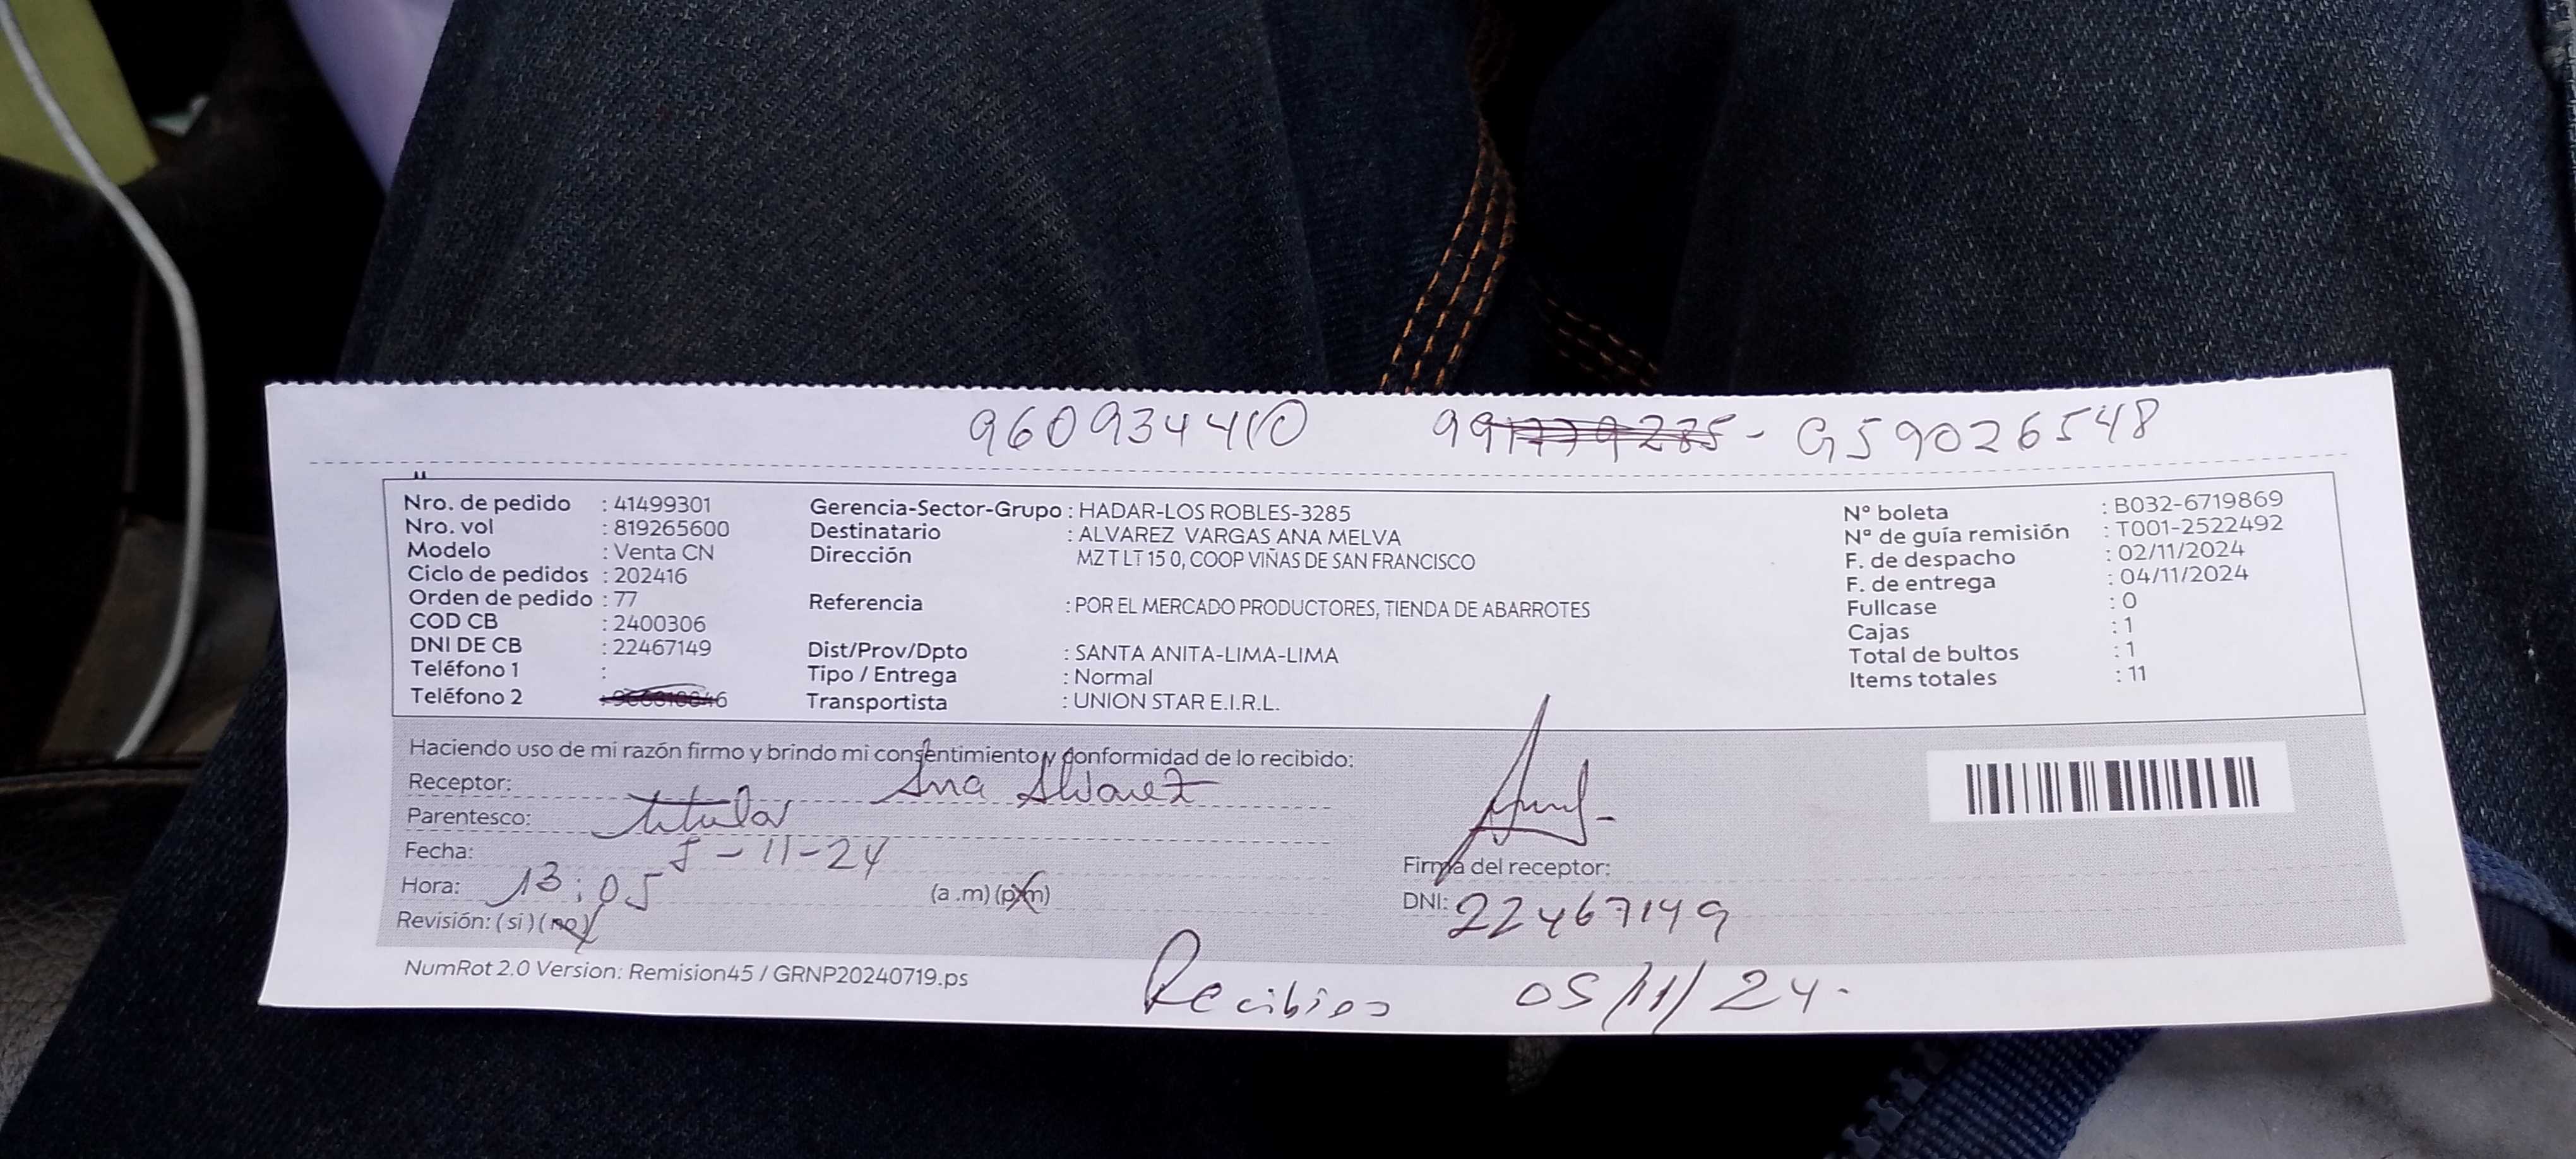 960934410 991779285 - 959026548
Nro. de pedido : 41499301
Nro. vol : 819265600
Modelo : Venta CN
Ciclo de pedidos : 202416
Orden de pedido : 77
COD CB : 2400306
DNI DE CB : 22467149
Teléfono 1 :
Teléfono 2 :
Gerencia-Sector-Grupo : HADAR-LOS ROBLES-3285
Destinatario : ALVAREZ VARGAS ANA MELVA
Dirección MZ T LT 15 0, COOP VIÑAS DE SAN FRANCISCO
Referencia : POR EL MERCADO PRODUCTORES, TIENDA DE ABARROTES
Dist/Prov/Dpto : SANTA ANITA-LIMA-LIMA
Tipo / Entrega : Normal
Transportista : UNION STAR E.I.R.L.
N° boleta : B032-6719869
N° de guía remisión : T001-2522492
F. de despacho : 02/11/2024
F. de entrega : 04/11/2024
Fullcase : 0
Cajas : 1
Total de bultos : 1
Items totales : 11
Haciendo uso de mi razón firmo y brindo mi consentimiento y conformidad de lo recibido:
Receptor: Ana Alvarez
Parentesco: titular
Fecha: 5-11-24
Hora: 13:05 (a.m) (p.m)
Revisión: (si) (no)
Firma del receptor:
DNI: 22467149
NumRot 2.0 Version: Remision45 / GRNP20240719.ps
Recibido 05/11/24.